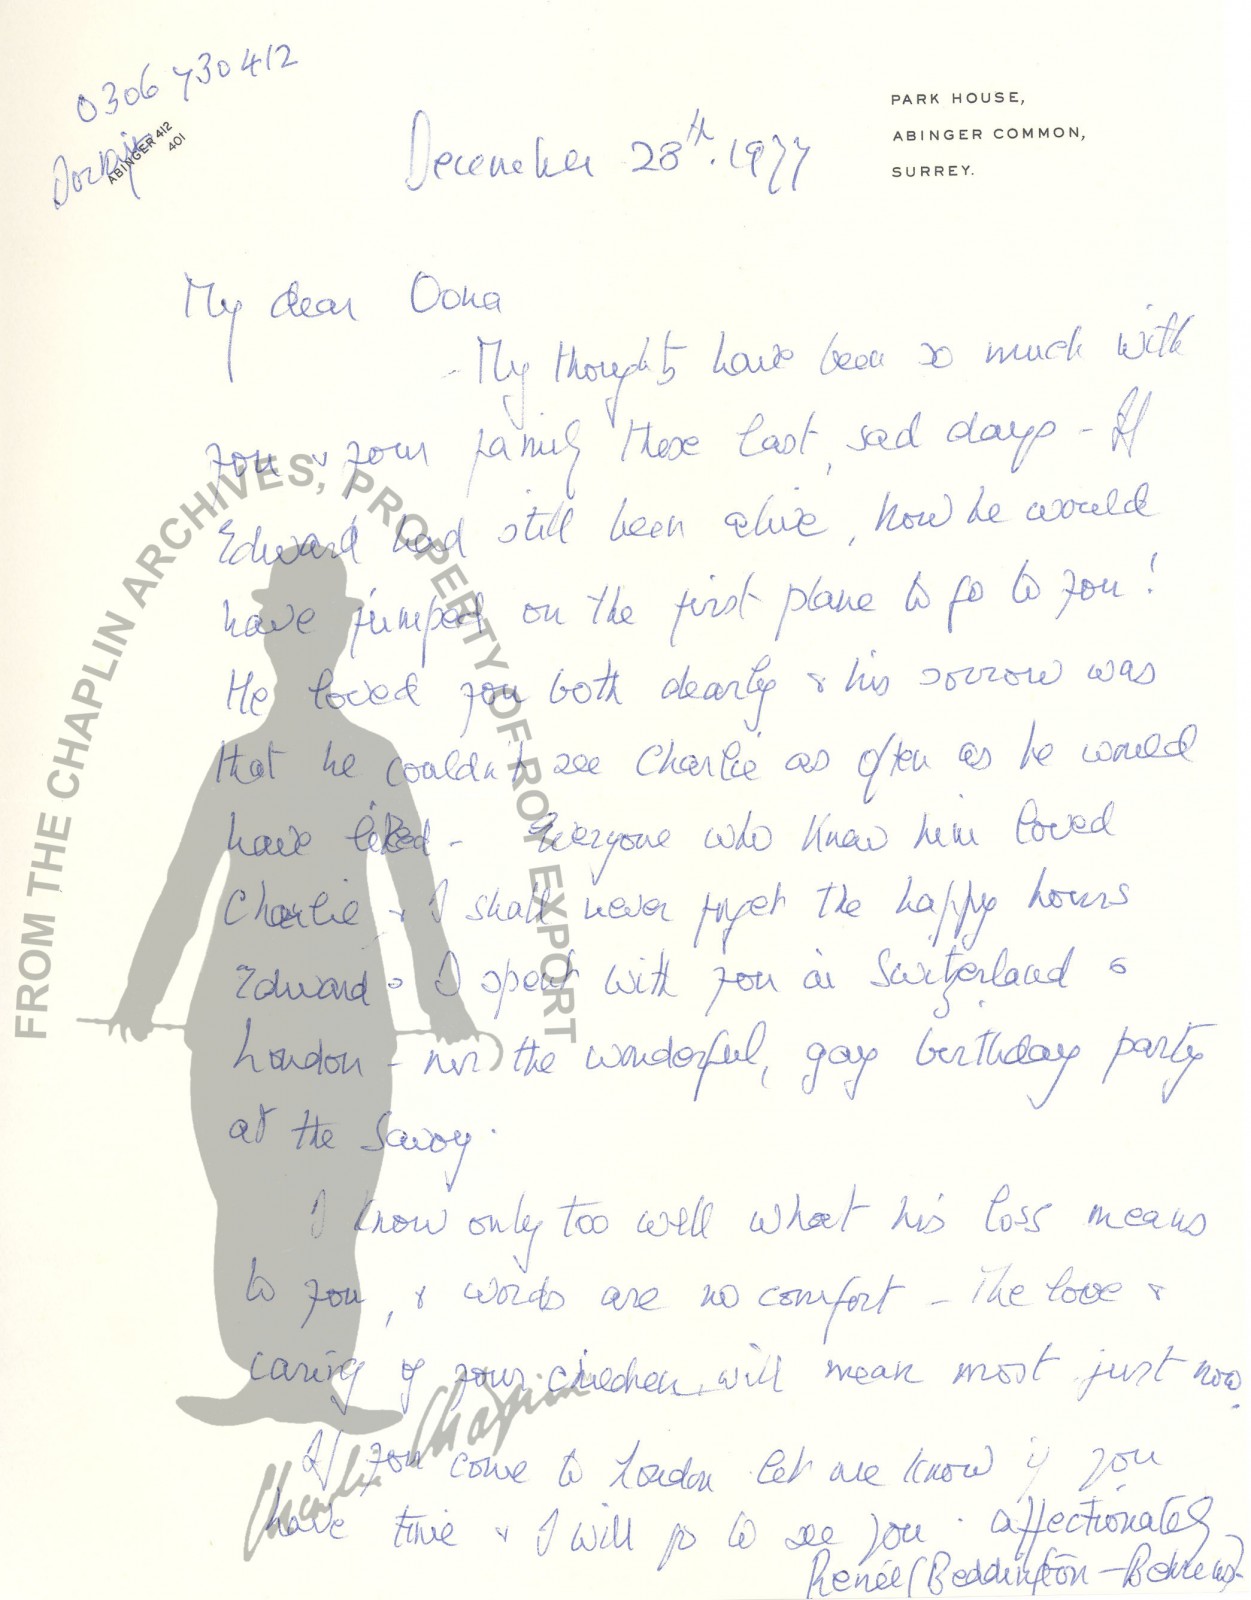 0306 730412
Dorking
ABINGER 412
401
PARK HOUSE,
ABINGER COMMON,
SURREY.
December 28th. 1977
My dear Oona
- My thoughts have been so much with
you & your family these last, sad days - If
Edward had still been alive, how he would
have jumped on the first plane to go to you!
He loved you both dearly & his sorrow was
that he couldn't see Charlie as often as he would
have liked - Everyone who knew him loved
Charlie & I shall never forget the happy hours
Edward & I spent with you in Switzerland &
London - nor the wonderful, gay birthday party
at the Savoy.
I know only too well what his loss means
to you, & words are no comfort - The love &
caring of your children will mean most just now.
If you come to London let me know if you
have time & I will go to see you. affectionately
Renée (Beddington-Behrens)
FROM THE CHAPLIN ARCHIVES, PROPERTY OF ROY EXPORT
Charlie Chaplin